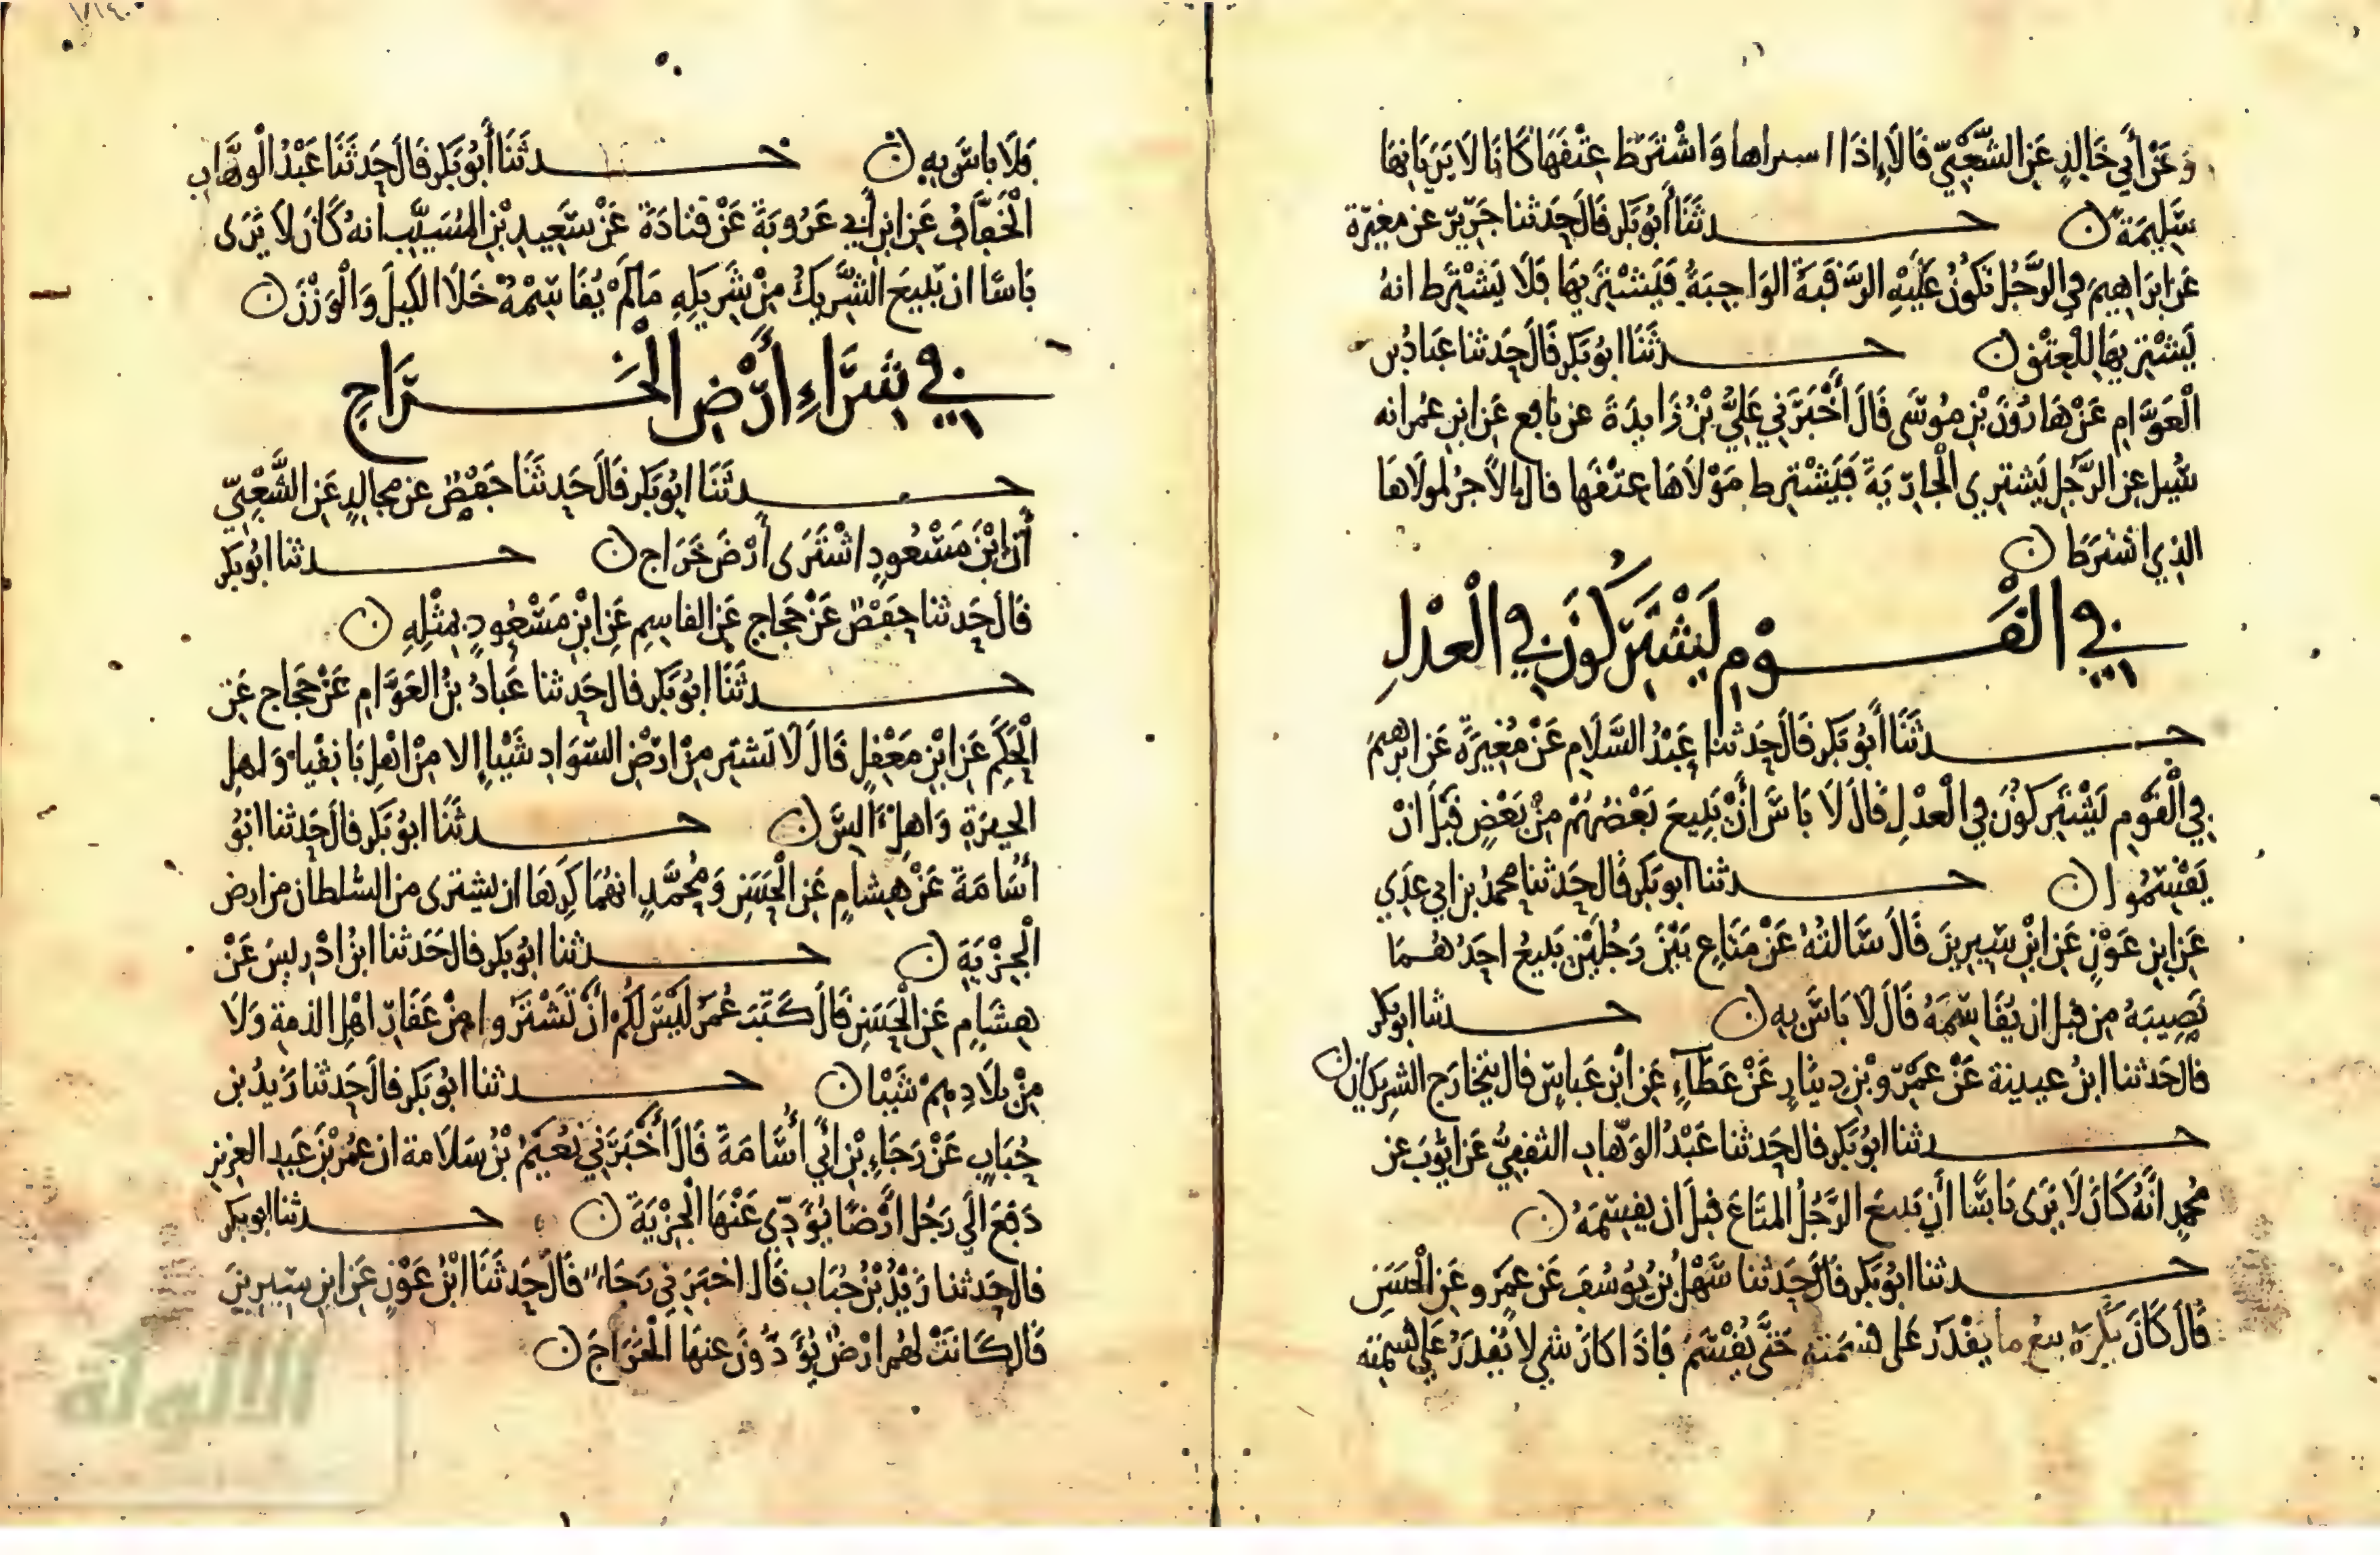 وَعَنْ أَبِي خَالِدٍ عَنِ الشَّعْبِيّ قَالَ إِذَا اسراها وَاشْتَرَطَ عِتْقَهَا كَانَا لَا يَرَيَانِهَا
سَلِيمَةً ن حـدثَنَا أَبُو بَكر قَالَ حَدثنا جَرِير عن مغيرة
عَن ابرَاهِيمَ في الرَّجُل تكُونُ عَلَيْهِ الرَّقَبَةُ الوَاجِبَةُ فَيَشْتَرِيهَا فَلَا يَشْتَرِط انهُ
يَشْتَرِيهَا لِلْعِتْقِ ن حـدثَنَا ابُو بَكر قَالَ حَدثنا عَبادُ بن
الْعَوَّام عَنْ هَارُونَ بْنِ مُوسَى قَالَ أَخْبَرَنِي عَلِيُّ بْنُ زَايدَةَ عن نافع عَن ابن عُمر انه
سُيل عن الرَّجُل يَشترى الْجَارِيَةَ فَيَشْتَرط مَوْلَاهَا عِتْقَها قال الاجرُ لمولَاها
الذِي اشترَطَ ن
في الْقَـوْمِ يَشْتَرِكُونَ في الْعِدْلِ
حـدثَنَا أَبُو بَكر قَالَ حَدثنا عَبْدُ السَّلَام عَنْ مُغِيرَةَ عَن ابرهيمَ
فِي الْقَوْم يَشْتَرِكُونَ في الْعِدْل قَالَ لَا بَاسَ أَنْ يَبِيعَ بَعْضُهُمْ مِنْ بَعْضٍ قَبْلَ انْ
يَقْتَسِمُوا ن حـدثنا ابو بَكر قَال حَدثنا محمدُ بن ابي عدِي
عَن ابن عَوْنٍ عَن ابْن سِيرِينَ قَالَ سَالتهُ عَنْ مَتَاعٍ بَيْنَ رَجُلَيْنِ يَبِيعُ احَدُهُمَا
نَصِيبَهُ مِن قبل ان يُقَاسِمَهُ قَالَ لَا بَاسَ بِهِ ن حـدثنا ابو بكر
قال حَدثنا ابنُ عيينة عَنْ عَمْرو بْنِ دِينَارٍ عَنْ عَطَآءٍ عَن ابْنِ عَباسٍ قال يتخَارَج الشرِيكان ن
حـدثنا ابُو بَكر قال حَدثنا عَبْدُ الوَهّاب الثقفِيُّ عَن ايُّوبَ عن
مُحمدٍ انَّهُ كَانَ لَا يَرَى بَاسًا أن يَبيعَ الرَّجُلُ المتَاعَ قبلَ ان يقسِمَهُ ن
حـدثنا ابُو بَكر قالَ حَدثنا سَهْلُ بنُ يُوسُفَ عَن عَمْرو عَنِ الْحَسَنِ
قَالَ كَانَ يَكرَهُ بيعَ ما يقْدَر عَلى قسْمَته حَتَّى يُقْسَمَ فَاذَا كَانَ شي لا يُقدَرُ عَلى قسمته
فَلَا باسَ بِهِ ن حـدثَنَا أَبُو بَكر قَالَ حَدثَنَا عَبْدُ الْوهَّاب
الْخَفَّافُ عَن ابن أبي عَرُوبَةَ عَنْ قتَادَةَ عَنْ سَعِيدِ بْنِ المُسَيَّب انهُ كَانَ لَا يَرَى
بَاسًا ان يَبِيعَ الشَّرِيكُ مِنْ شَرِيكِهِ مَا لَمْ يُقَاسِمْهُ خَلَا الكَيلَ وَالْوَزْنَ ن
في شِرَاءِ أَرْضِ الْخَـرَاجِ
حـدثَنَا ابُو بَكر قَالَ حَدثَنَا حَفْصٌ عن مجالِدٍ عَنِ الشَّعْبِيّ
أَنّ ابْنَ مَسْعُودٍ اشْتَرَى أَرْضَ خَرَاج ن حـدثنا ابُو بَكر
قَالَ حَدثنا حَفْصٌ عَنْ حَجاج عَنِ القاسِمِ عَنِ ابْنِ مَسْعُودٍ بِمِثْلِهِ ن
حـدثَنَا ابُو بَكر قال حَدثنا عَبادُ بنُ العَوَّام عَنْ حَجَّاج عَن
الْحَكَم عَن ابْنِ مَعْقِلٍ قَالَ لَا تَشتَرِ مِنْ ارْضِ السَّوَادِ شَيْيا إلا مِنْ اهْلِ بَانِقْيَا وَاهلِ
الحِيرَةِ وَاهلِ الليس ن حـدثَنَا ابُو بَكر قال حَدثنا ابُو
أُسَامَةَ عَنْ هِشام عَن الْحَسَن وَمُحمَّدٍ انهُمَا كرِهَا ان يشترى من السُّلطان من ارض
الْجِزْيَةِ ن حـدثنا ابُو بَكر قال حَدَثنا ابنُ ادْريسَ عَنْ
هِشَامٍ عَن الْحَسَن قَالَ كَتَبَ عُمَرُ لَيْسَ لَكُم أَنْ تَشْتَرُوا مِنْ عَقَارِ اهْلِ الذمة وَلَا
مِنْ بِلَادِهِمْ شَيْيا ن حـدثنا ابُو بَكر قال حَدثنا زَيدُ بن
حُبَابٍ عَنْ رَجَاءِ بْنِ أَبِي أُسَامَةَ قَالَ أَخْبَرَنِي نُعَيْمُ بْنُ سَلَامة ان عُمَرَ بْنَ عَبدِ العزيز
دَفعَ الَى رَجُل ارْضًا يُؤَدِّى عَنْهَا الْجِزْيَةَ ن حـدثنا ابو بكر
قال حَدثنا زَيْدُ بْنُ حُبَابٍ قَال اخبَرَنِي رَجَاء قَالَ حَدثَنَا ابْنُ عَوْنٍ عَن ابنِ سِيرِينَ
قَال كَانَتْ لهُم ارْضٌ يُؤَدُّونَ عنهَا الْخَرَاجَ ن
الألوكة